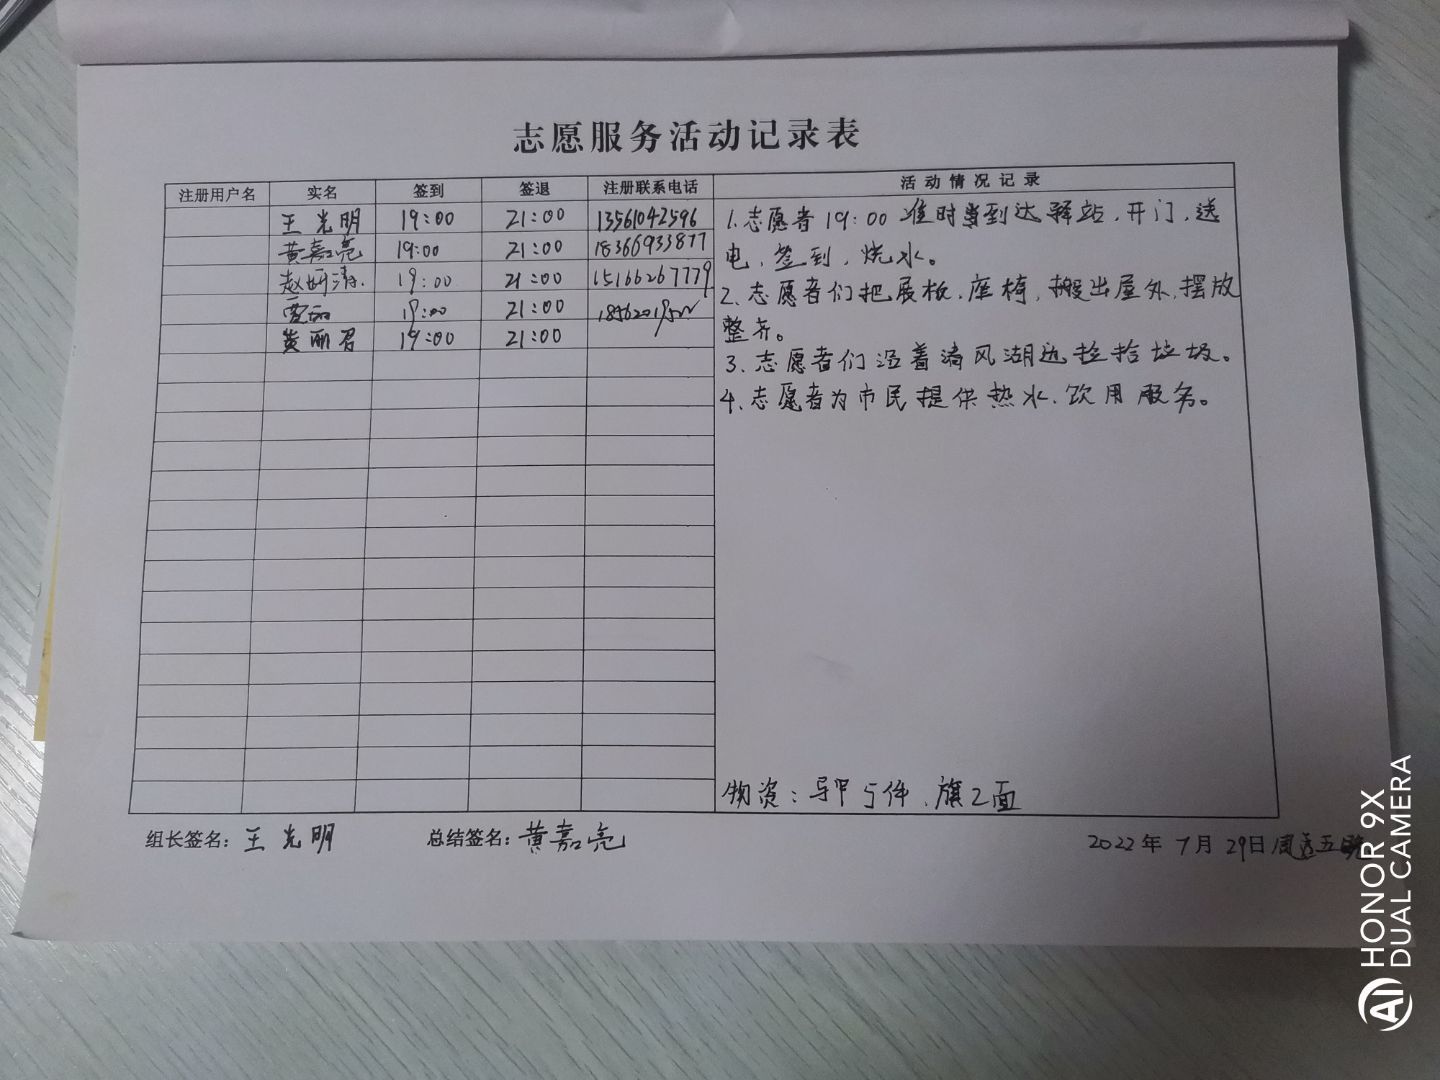 志愿服务活动记录表
注册用户名 实名 签到 签退 注册联系电话 活动情况记录
王光明 19:00 21:00 13561042596
黄嘉亮 19:00 21:00 18366933877
赵妍清 19:00 21:00 15166267779
贾丽 19:00 21:00
黄丽君 19:00 21:00
1.志愿者19:00准时到达驿站,开门,送
电、签到,烧水。
2、志愿者们把展板、座椅,搬出屋外,摆放
整齐。
3、志愿者们沿着清风湖边捡拾垃圾。
4、志愿者为市民提供热水、饮用服务。
物资:马甲5件、旗2面
组长签名:王光明 总结签名:黄嘉亮 2022年7月29日周五晚
HONOR 9X
DUAL CAMERA
AI